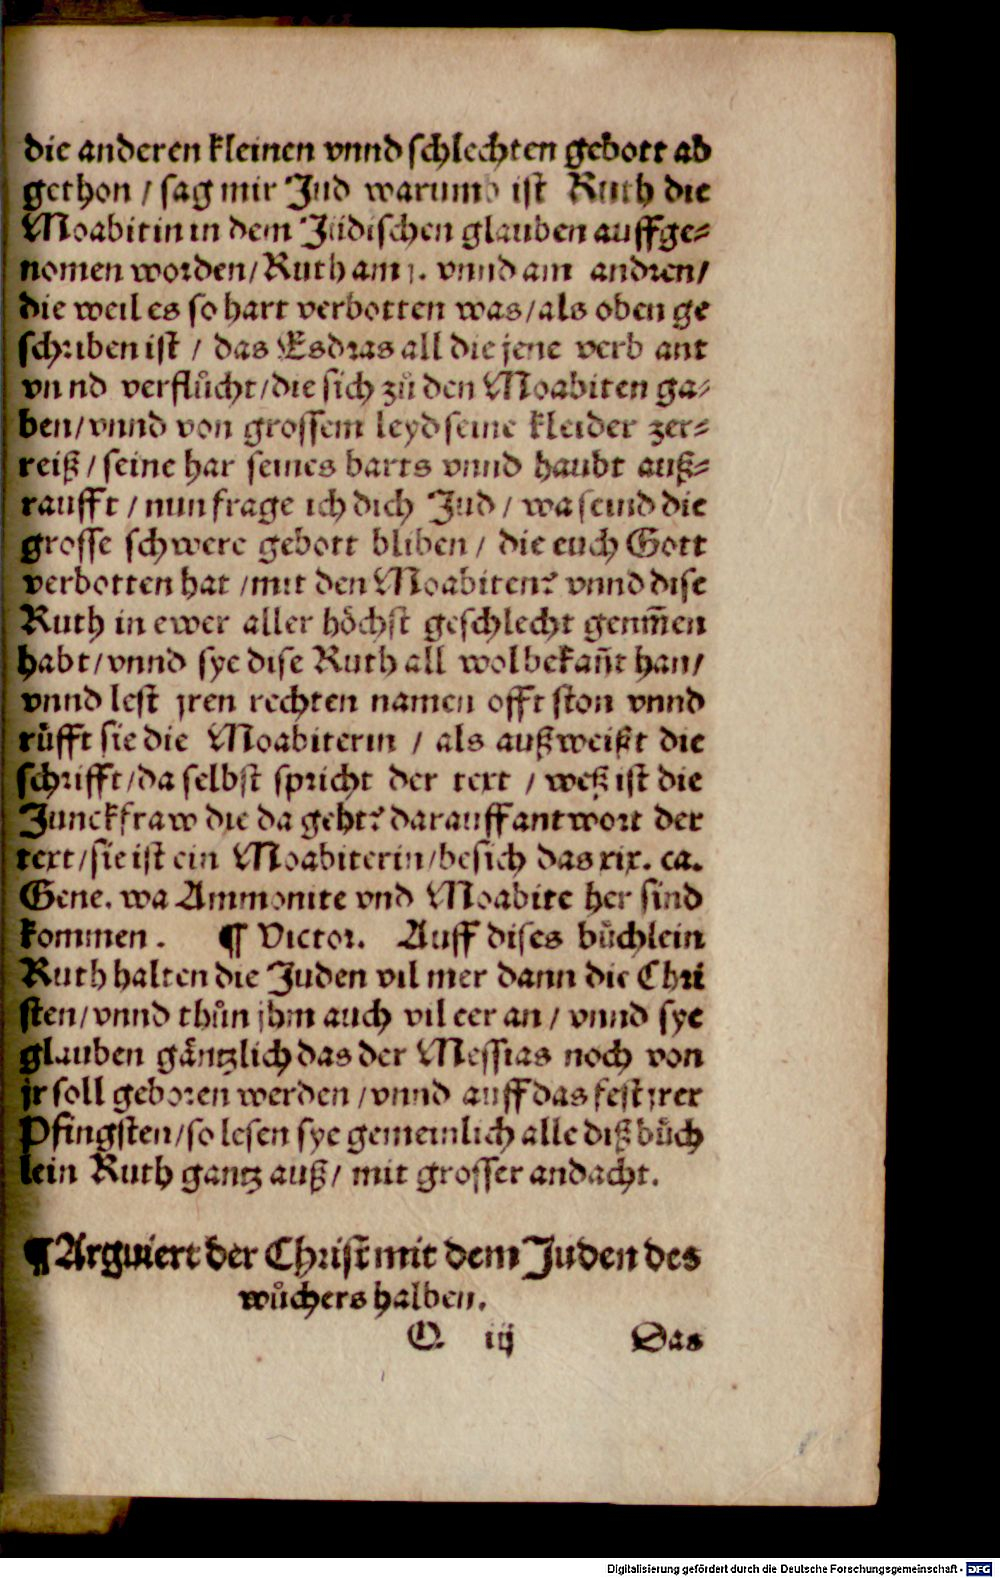 die anderen kleinen vnnd schlechten gebott ab
gethon / sag mir Jud warumb ist Ruth die
Moabitin in dem Jüdischen glauben auffge⸗
nomen worden/ Ruth am j. vnnd am andren/
die weil es so hart verbotten was/ als oben ge
schriben ist / das Esdras all die jene verb ant
vn nd verflůcht/ die sich zů den Moabiten ga⸗
ben/ vnnd von grossem leyd seine kleider zer⸗
reiß / seine har seines barts vnnd haubt auß⸗
raufft / nun frage ich dich Jud / wa seind die
grosse schwere gebott bliben / die euch Gott
verbotten hat /mit den Moabiten? vnnd dise
Ruth in ewer aller höchst geschlecht genm̄en
habt/ vnnd sye dise Ruth all wolbekañt han/
vnnd lest jren rechten namen offt ston vnnd
rüfft sie die Moabiterin / als außweißt die
schrifft/ da selbst spricht der text / weß ist die
Junckfraw die da geht? darauff antwort der
text/ sie ist ein Moabiterin/ besich das xix. ca.
Gene. wa Ammonite vnd Moabite her sind
kommen. ¶ Victor. Auff dises bůchlein
Ruth halten die Juden vil mer dann die Chri
sten/ vnnd thůn jhm auch vil eer an / vnnd sye
glauben gäntzlich das der Messias noch von
jr soll geboren werden / vnnd auff das fest jrer
Pfingsten/ so lesen sye gemeinlich alle diß bůch
lein Ruth gantz auß/ mit grosser andacht.
¶ Arguiert der Christ mit dem Juden des
wůchers halben.
O. iij Das
Digitalisierung gefördert durch die Deutsche Forschungsgemeinschaft - DFG